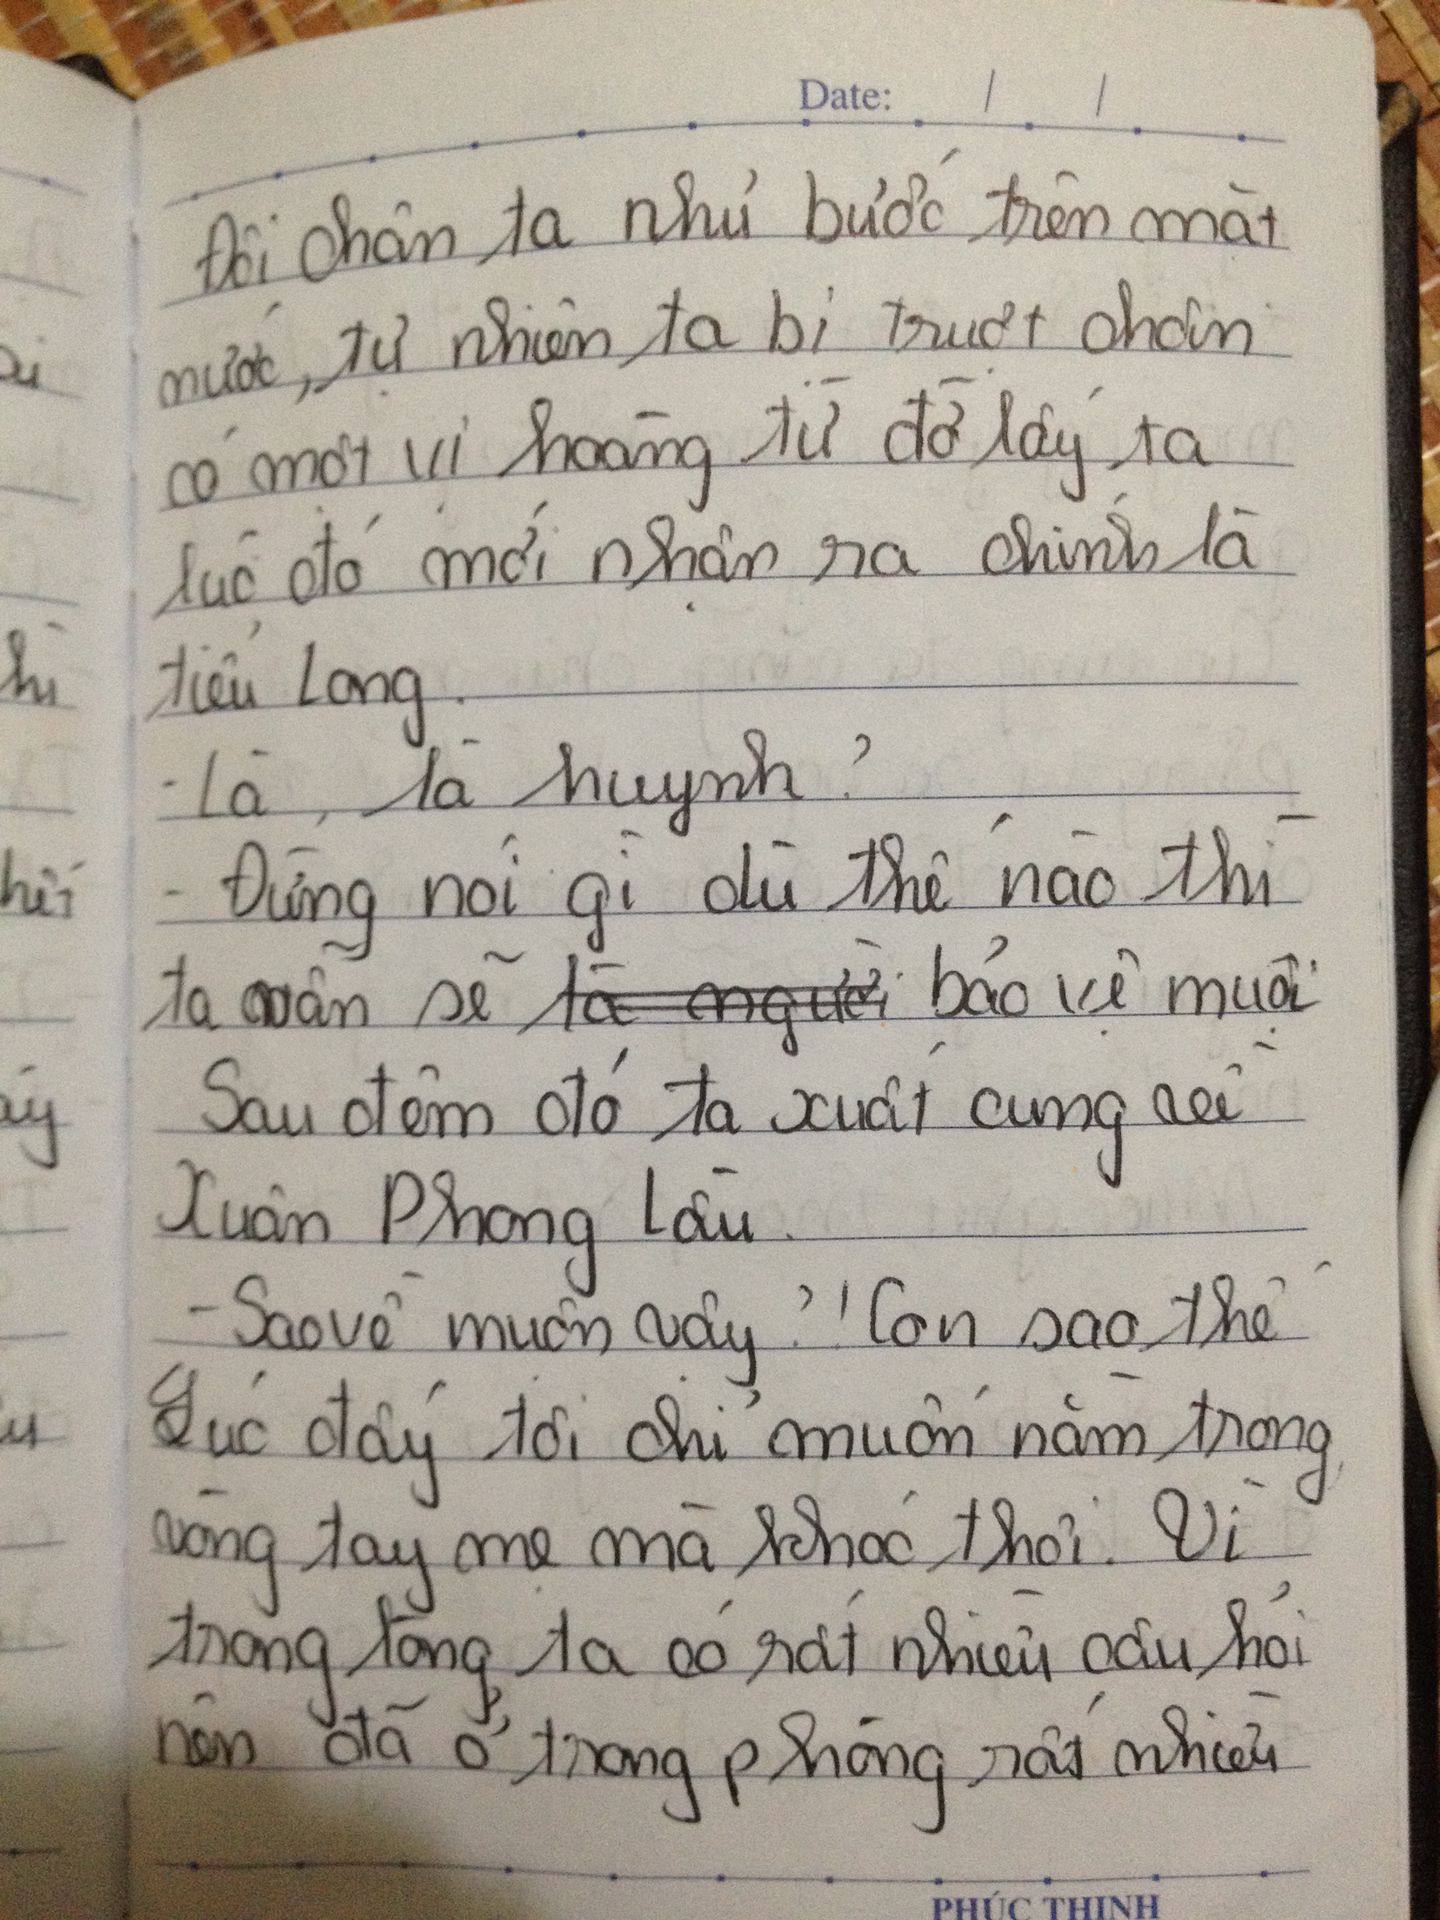 Date: / /
Đôi chân ta như bước trên mặt
nước, tự nhiên ta bị trượt chân
có một vị hoàng tử đỡ lấy ta
lúc đó mới nhận ra chính là
tiểu Long.
- Là, là huynh?
- Đừng nói gì dù thế nào thì
ta vẫn sẽ là người bảo vệ muội
Sau đêm đó ta xuất cung về
Xuân Phong Lâu.
- Sao về muộn vậy?! Con sao thế
Lúc đấy tôi chỉ muốn nằm trong
vòng tay mẹ mà khóc thôi. Vì
trong lòng ta có rất nhiều câu hỏi
nên đã ở trong phòng rất nhiều
PHÚC THỊNH